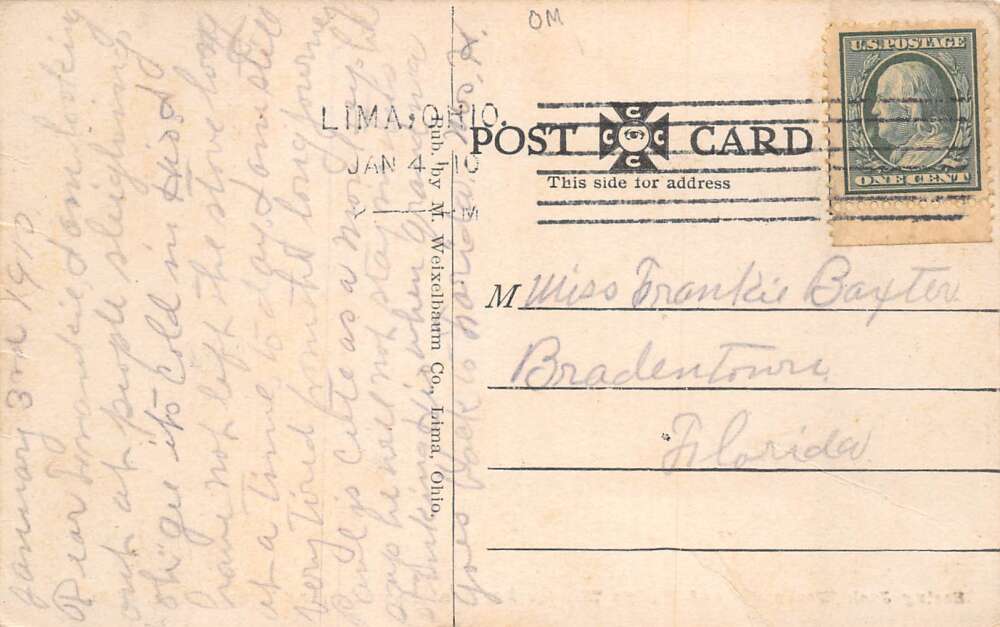 OM
U.S. POSTAGE
ONE CENT
LIMA, OHIO.
JAN 4 - 10
M
POST CARD
C C C C
This side for address
M Miss Frankie Baxter
Bradentown
Florida
Pub. by M. Weixelbaum Co., Lima, Ohio.
January 3rd 1910
Dear Frankie I am looking
out at people sleighing
oh "gee its Cold in this
have not left the stove long
at a time to day I am still
very tired long journey
is cute as a
says he will not stay
thinking when grandma
goes back to